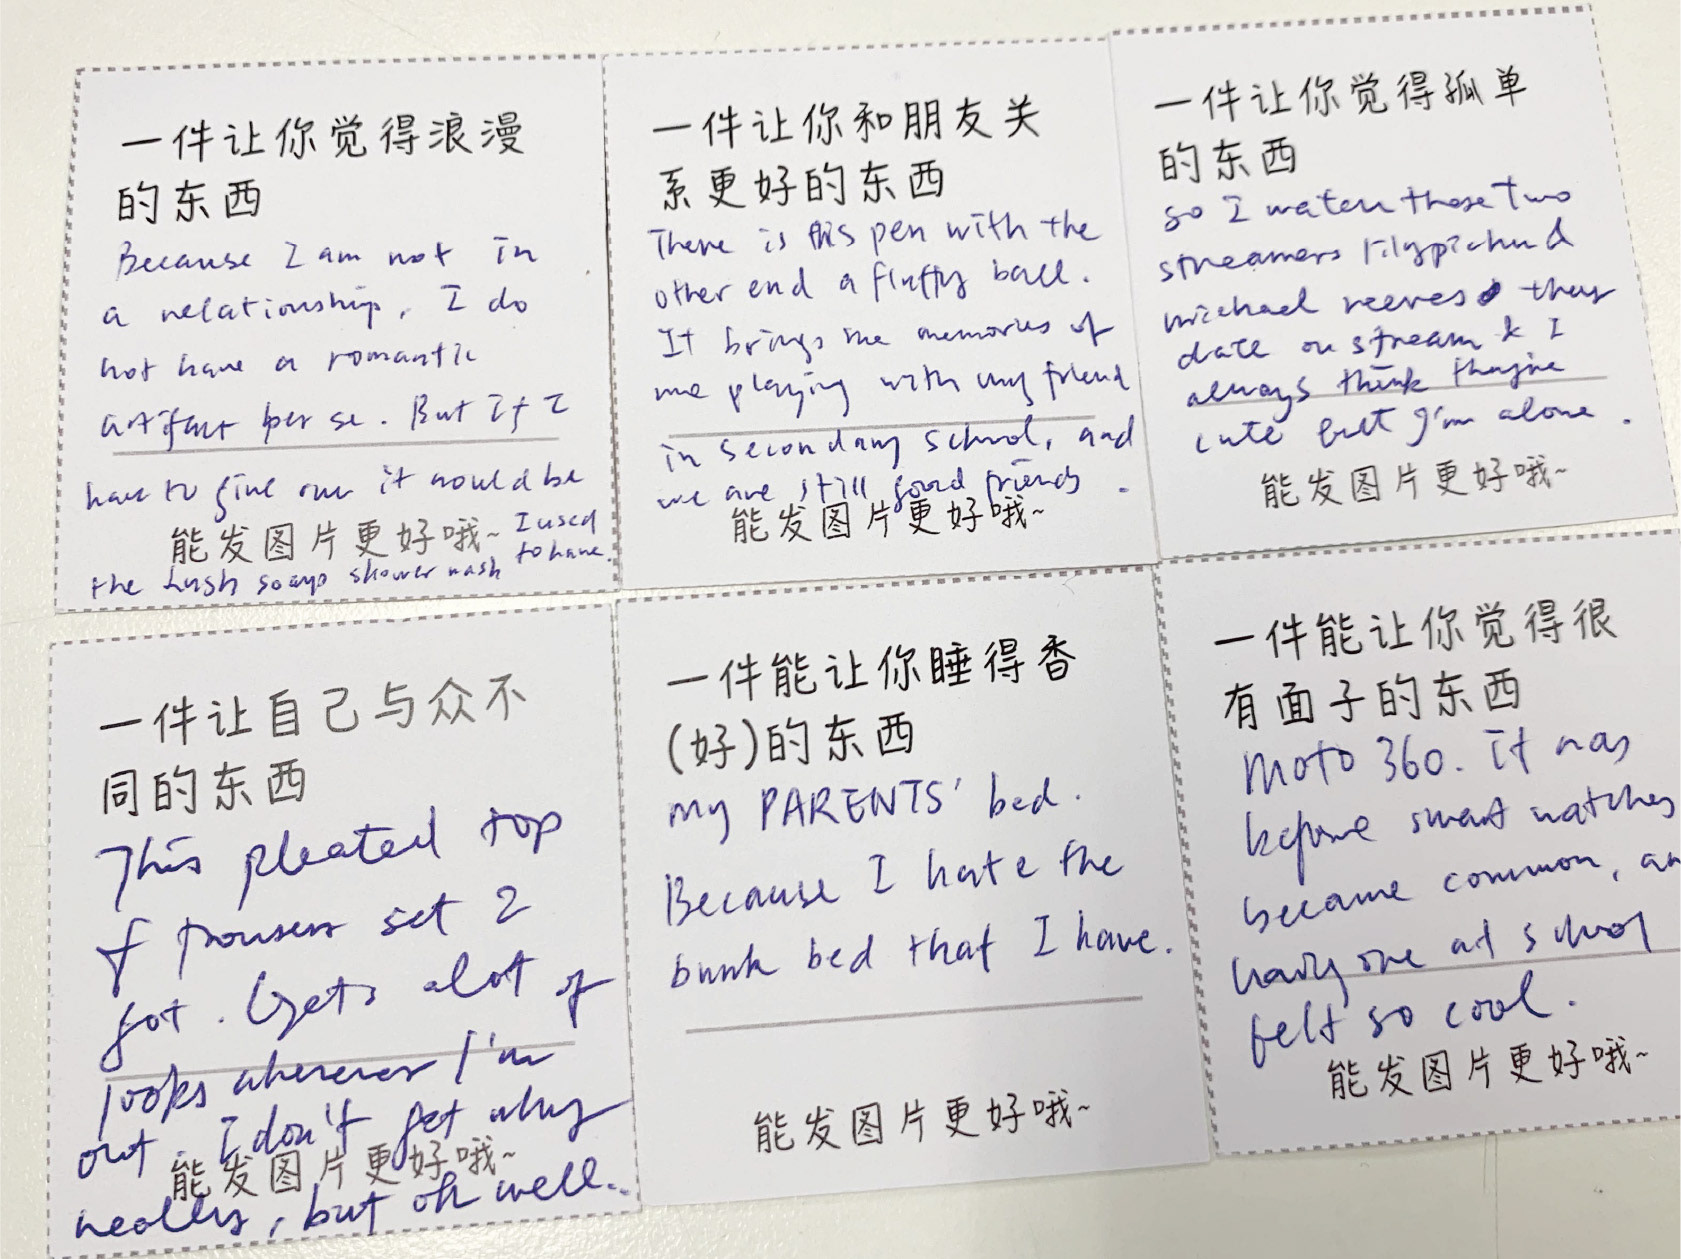 一件让你觉得浪漫
的东西
Because I am not in
a relationship, I do
not have a romantic
artifact per se. But if I
have to give one it would be
能发图片更好哦~ I used
to have
the Lush soap shower wash
一件让你和朋友关
系更好的东西
There is this pen with the
other end a fluffy ball.
It brings me memories of
me playing with my friend
in secondary school, and
we are still good friends.
能发图片更好哦~
一件让你觉得孤单
的东西
so I watch these two
streamers lilypichu &
michael reeves they
date on stream & I
always think they're
cute but I'm alone.
能发图片更好哦~
一件让自己与众不
同的东西
This pleated top
& trousers set I
got. Gets alot of
looks wherever I'm
out. I don't get why
能发图片更好哦~
really, but oh well..
一件能让你睡得香
(好)的东西
my PARENTS' bed.
Because I hate the
bunk bed that I have.
能发图片更好哦~
一件能让你觉得很
有面子的东西
Moto 360. It was
before smart watches
became common, an
having one at school
felt so cool.
能发图片更好哦~